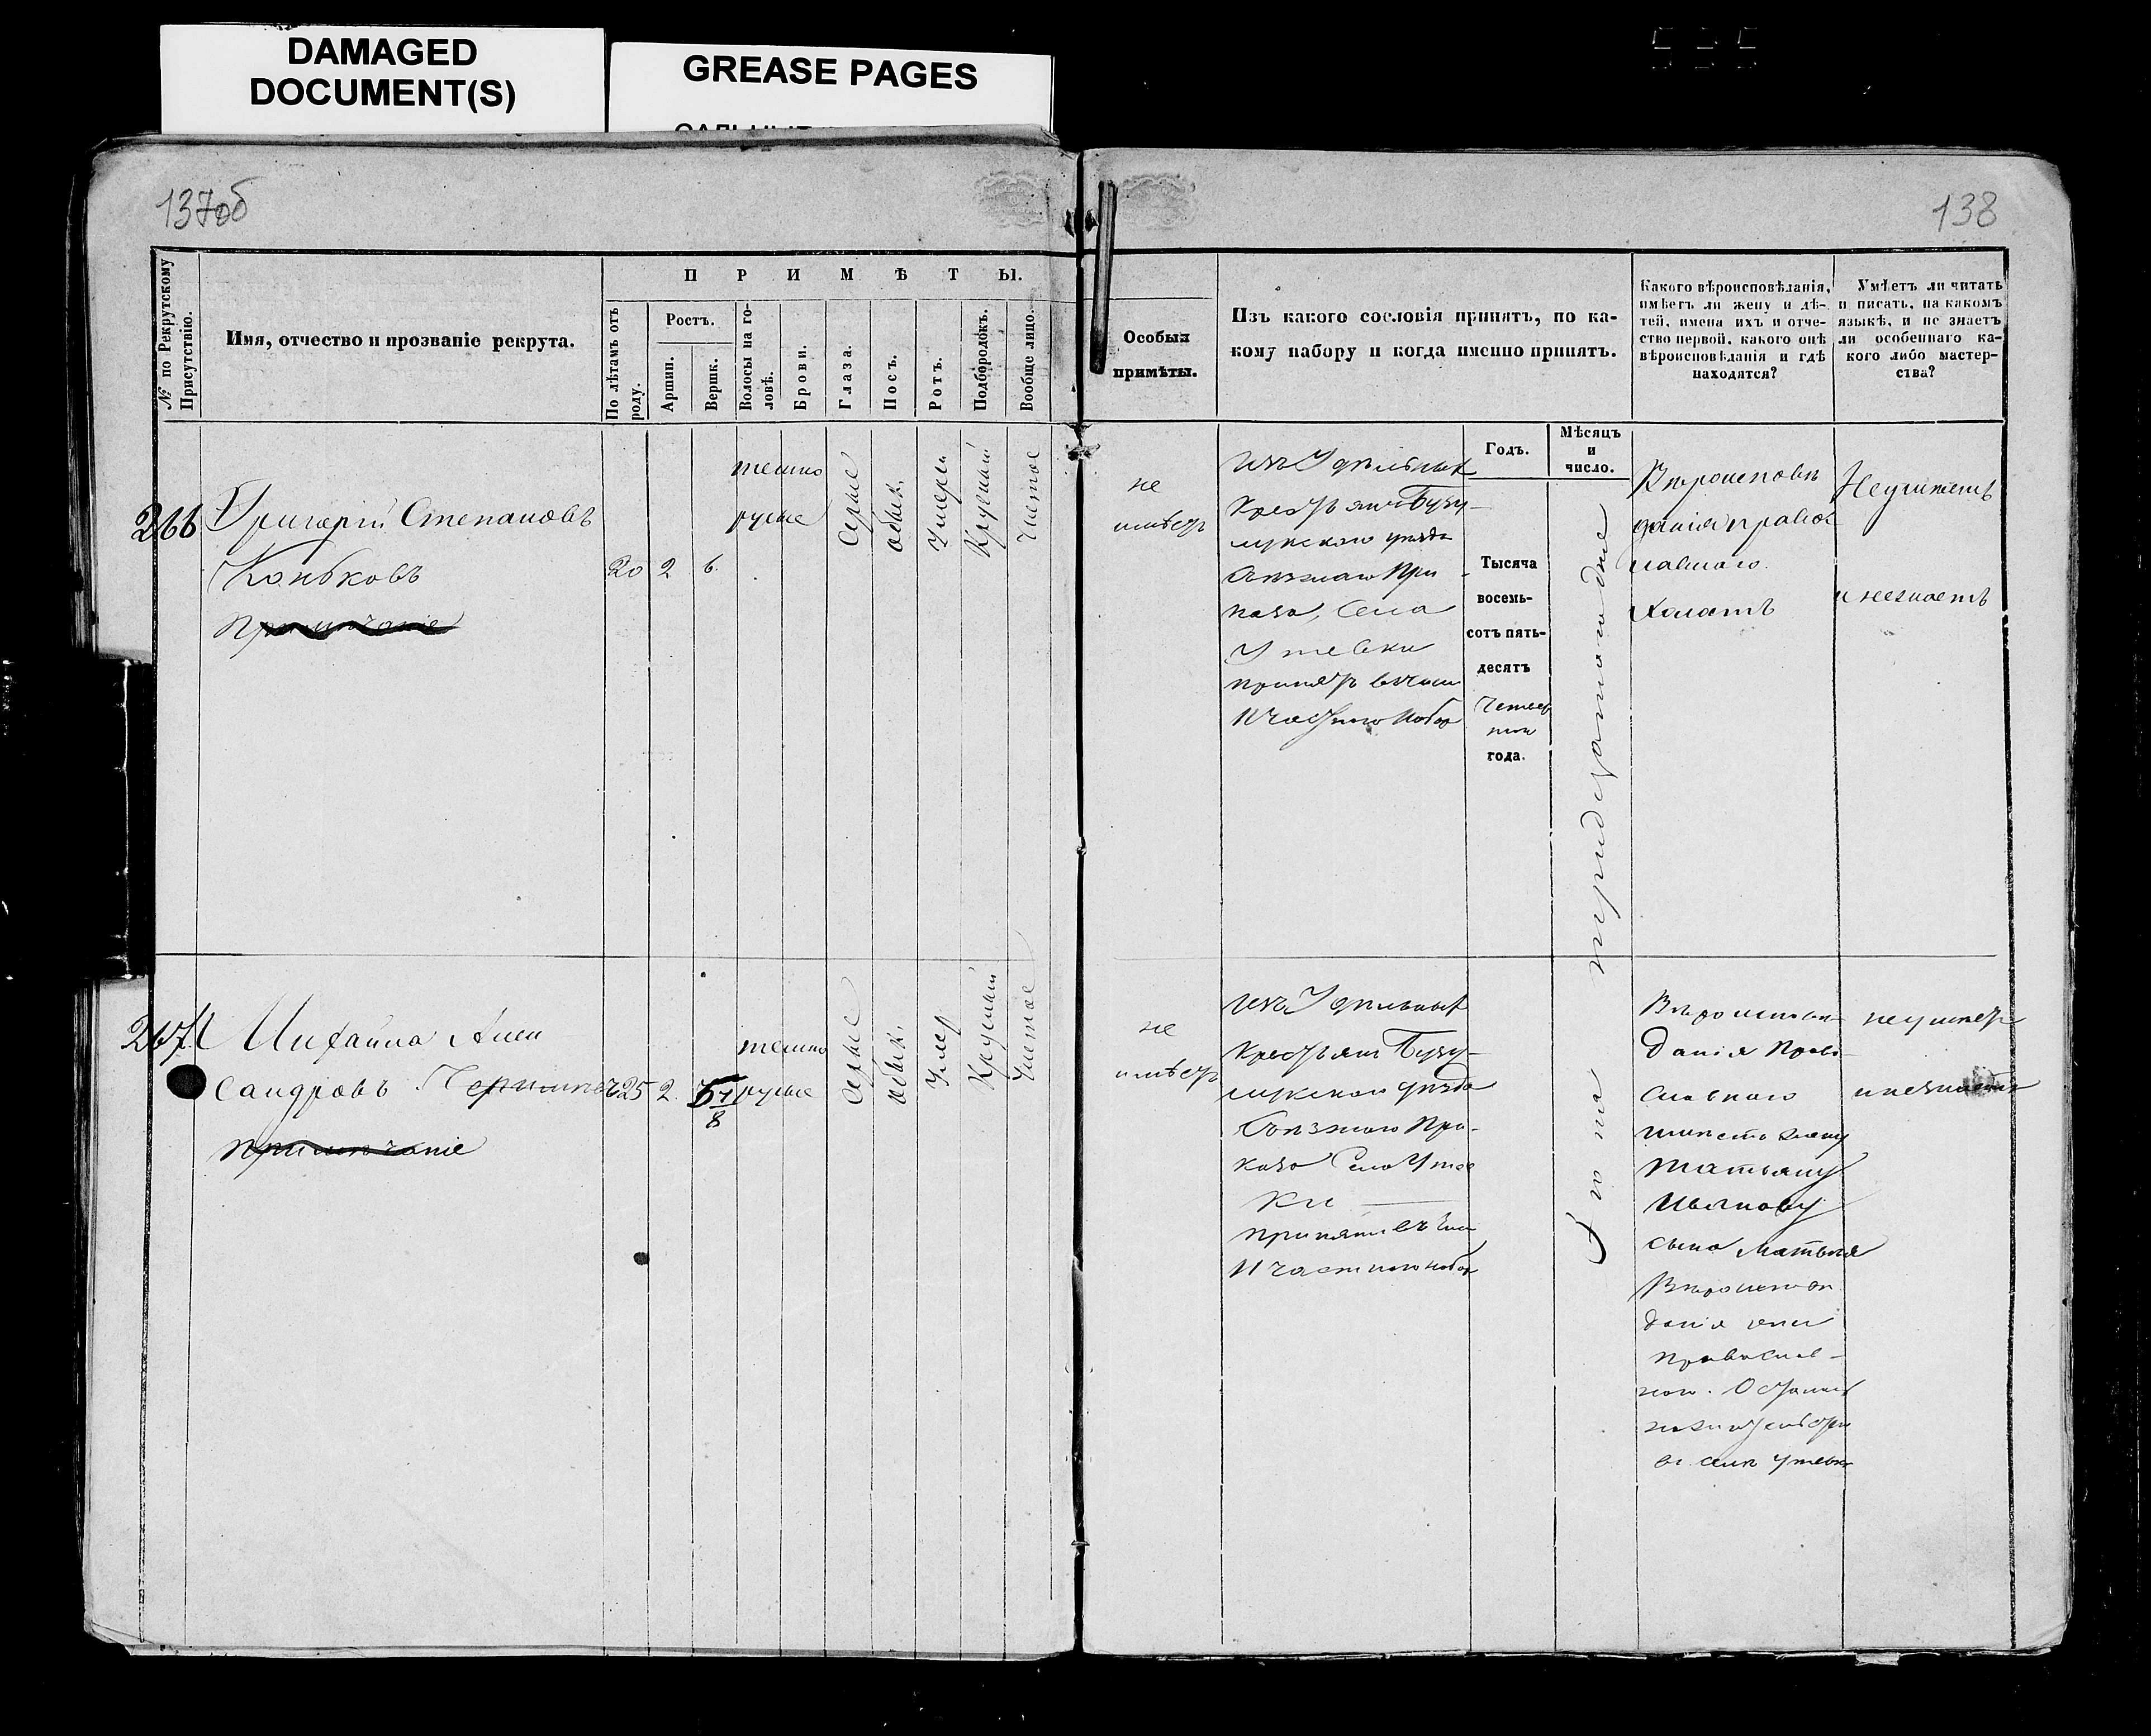 DAMAGED
DOCUMENT(S)
GREASE PAGES
137об
138
№ по Рекрутскому Присутствію.
Имя, отчество и прозваніе рекрута.
ПРИМѢТЫ.
По лѣтамъ отъ роду.
Ростъ.
Аршин.
Вершк.
Волосы на головѣ.
Брови.
Глаза.
Носъ.
Ротъ.
Подбородокъ.
Вообще лицо.
Особыя
примѣты.
Изъ какого сословія принятъ, по ка-
кому набору и когда именно принятъ.
Какого вѣроисповѣданія,
имѣетъ ли жену и дѣ-
тей, имена ихъ и отче-
ство первой, какого онѣ
вѣроисповѣданія и гдѣ
находятся?
Умѣетъ ли читать
и писать, на какомъ
языкѣ, и не знаетъ
ли особеннаго ка-
кого либо мастер-
ства?
Годъ.
Мѣсяцъ
и
число.
266
Григорій Степановъ
Коньковъ
Примѣчаніе
20
2
6.
темно
русые
Серые
обык.
Умерен
Круглый
Чистое
не
имѣетъ
изъ Удѣльныхъ
Крестьянъ Бузу-
лукскаго уѣзда
Съѣзжаго При
каза, Села
Утевки
принятъ въ
11 частного набор
Тысяча
восемь-
сотъ пять-
десятъ
Четвер
того
года.
тридцатого дня
Вѣроисповѣ
данія правос
лавнаго.
Холостъ
Неумѣетъ
и незнаетъ
267
Михайла Алек
сандровъ
Примѣчаніе
25
2.
темно
русые
Серые
обык.
Умер
Круглый
Чистое
не
имѣетъ
изъ Удѣльныхъ
Крестьянъ Бузу-
лукскаго уѣзда
Съѣзжаго При-
каза Села Утев
ки
принятъ въ
11 частного набор
Вѣроисповѣ
данія Право-
славнаго
имѣетъ жену
Татьяну
Иванову
сына Матвѣя
Вѣроисповѣ
данія они
православ-
ного.
въ селѣ Утевкѣ
неумѣетъ
и незнаетъ